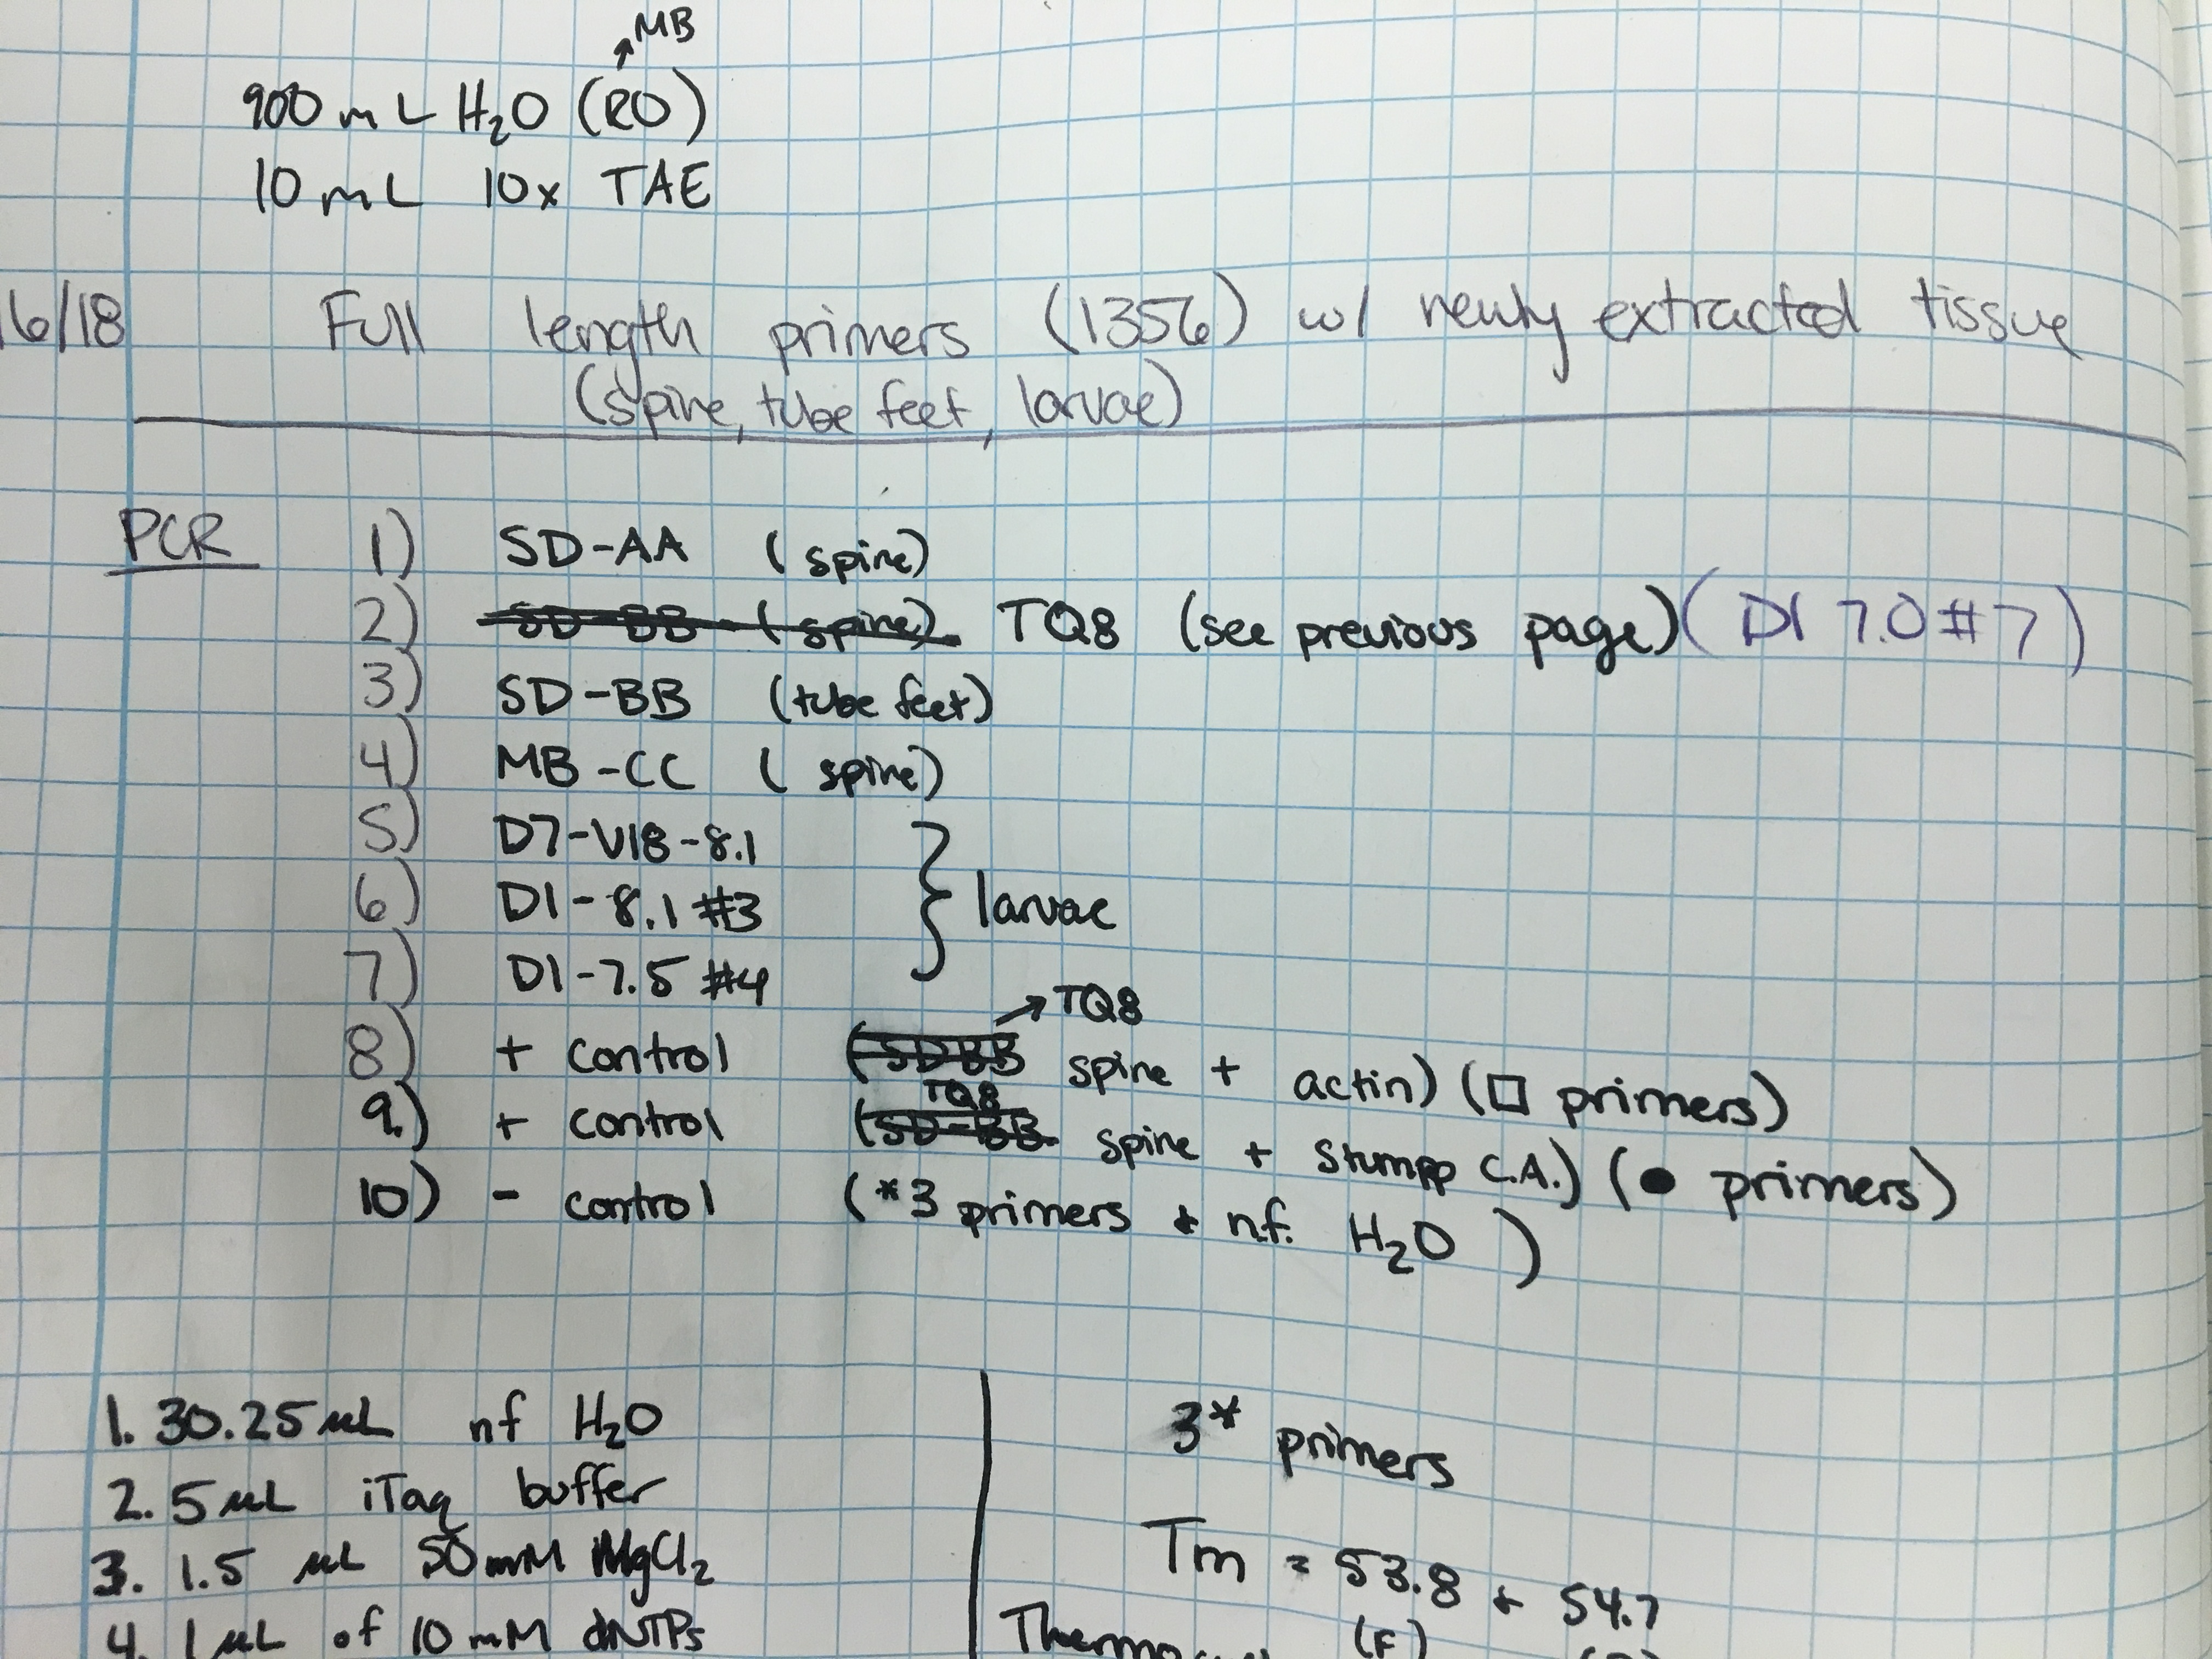 MB
900 mL H₂O (RO)
10 mL 10x TAE
16/18 Full length primers (1356) w/ newly extracted tissue
(spine, tube feet, larvae)
PCR 1) SD-AA (spine)
2) SD-BB (spine) TQ8 (see previous page) (D1 7.0 #7)
3) SD-BB (tube feet)
4) MB-CC (spine)
5) D7-V18-8.1
6) D1-8.1 #3 } larvae
7) D1-7.5 #4
→ TQ8
8) + control (SDBB spine + actin) (□ primers)
TQ8
9.) + control (SD-BB spine + Stumpp C.A.) (● primers)
10) - control (*3 primers + n.f. H₂O)
1. 30.25 µL nf H₂O
2. 5 µL iTaq buffer
3. 1.5 µL 50 mM MgCl₂
4. 1 µL of 10 mM dNTPs
3* primers
Tm = 53.8 + 54.7
(F)